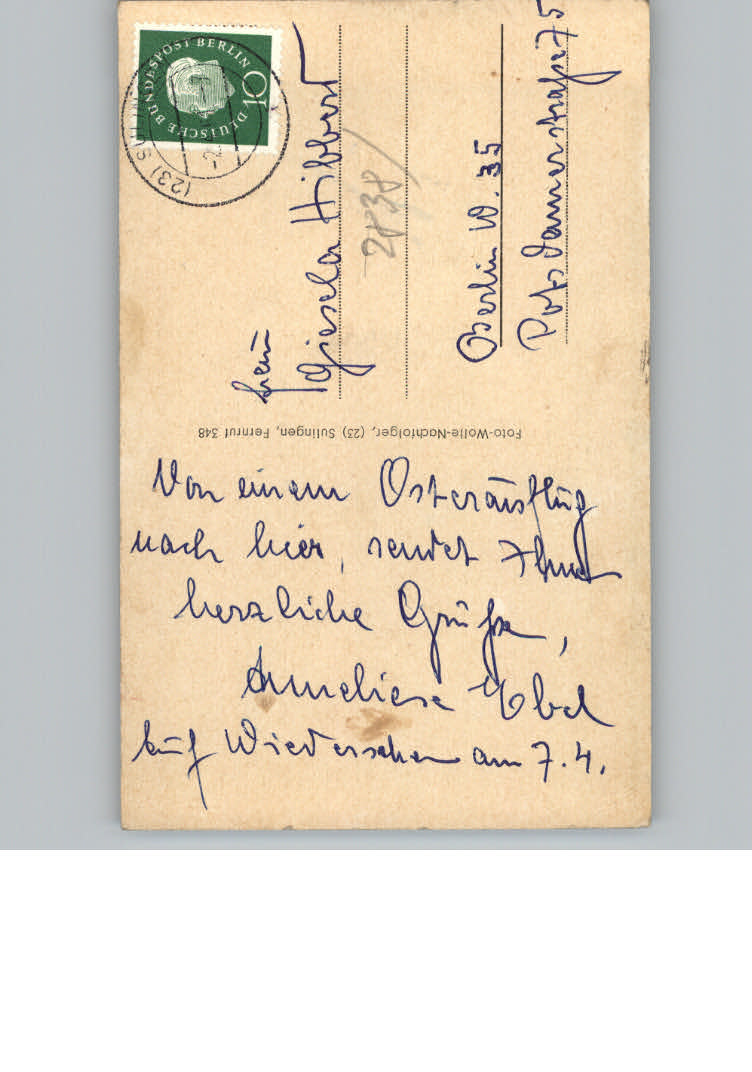 DEUTSCHE BUNDESPOST BERLIN
10
(23) SULINGEN
Frau
Gisela Hibbert
2838/
Berlin W. 35
Potsdamerstraße 75
Foto-Wolle-Nachfolger, (23) Sulingen, Fernruf 348
Von einem Osterausflug
nach hier, sendet Ihnen
herzliche Grüße,
Anneliese
Auf Wiedersehen am 7.4.